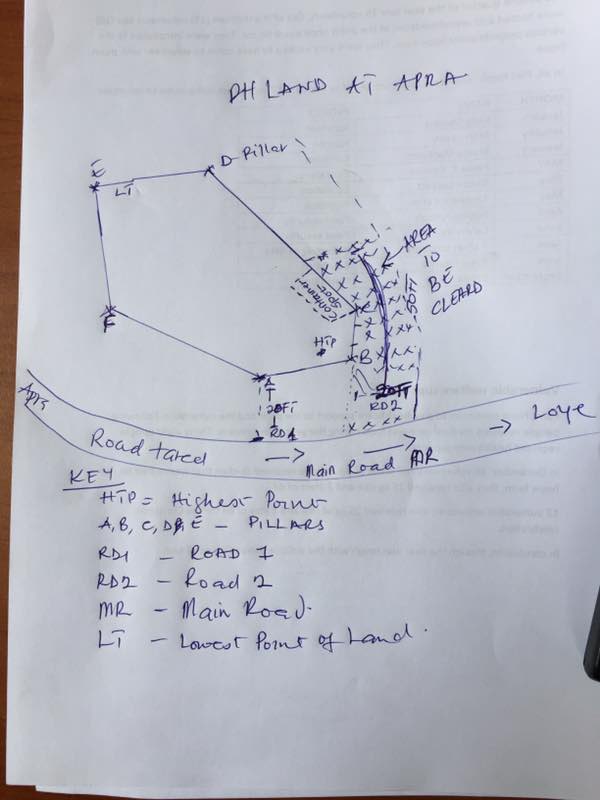 DH LAND AT APRA
E
D-Pillar
LT
AREA
TO
BE
CLEARD
Container
Space
50FT
C
HTP
B
F
A
20FT
RD1
20FT
RD2
Apra
Road tared
Main Road MR
Loye
KEY
HTP = Highest Point
A, B, C, D, E - PILLARS
RD1 - ROAD 1
RD2 - Road 2
MR - Main Road.
LT - Lowest Point of Land.